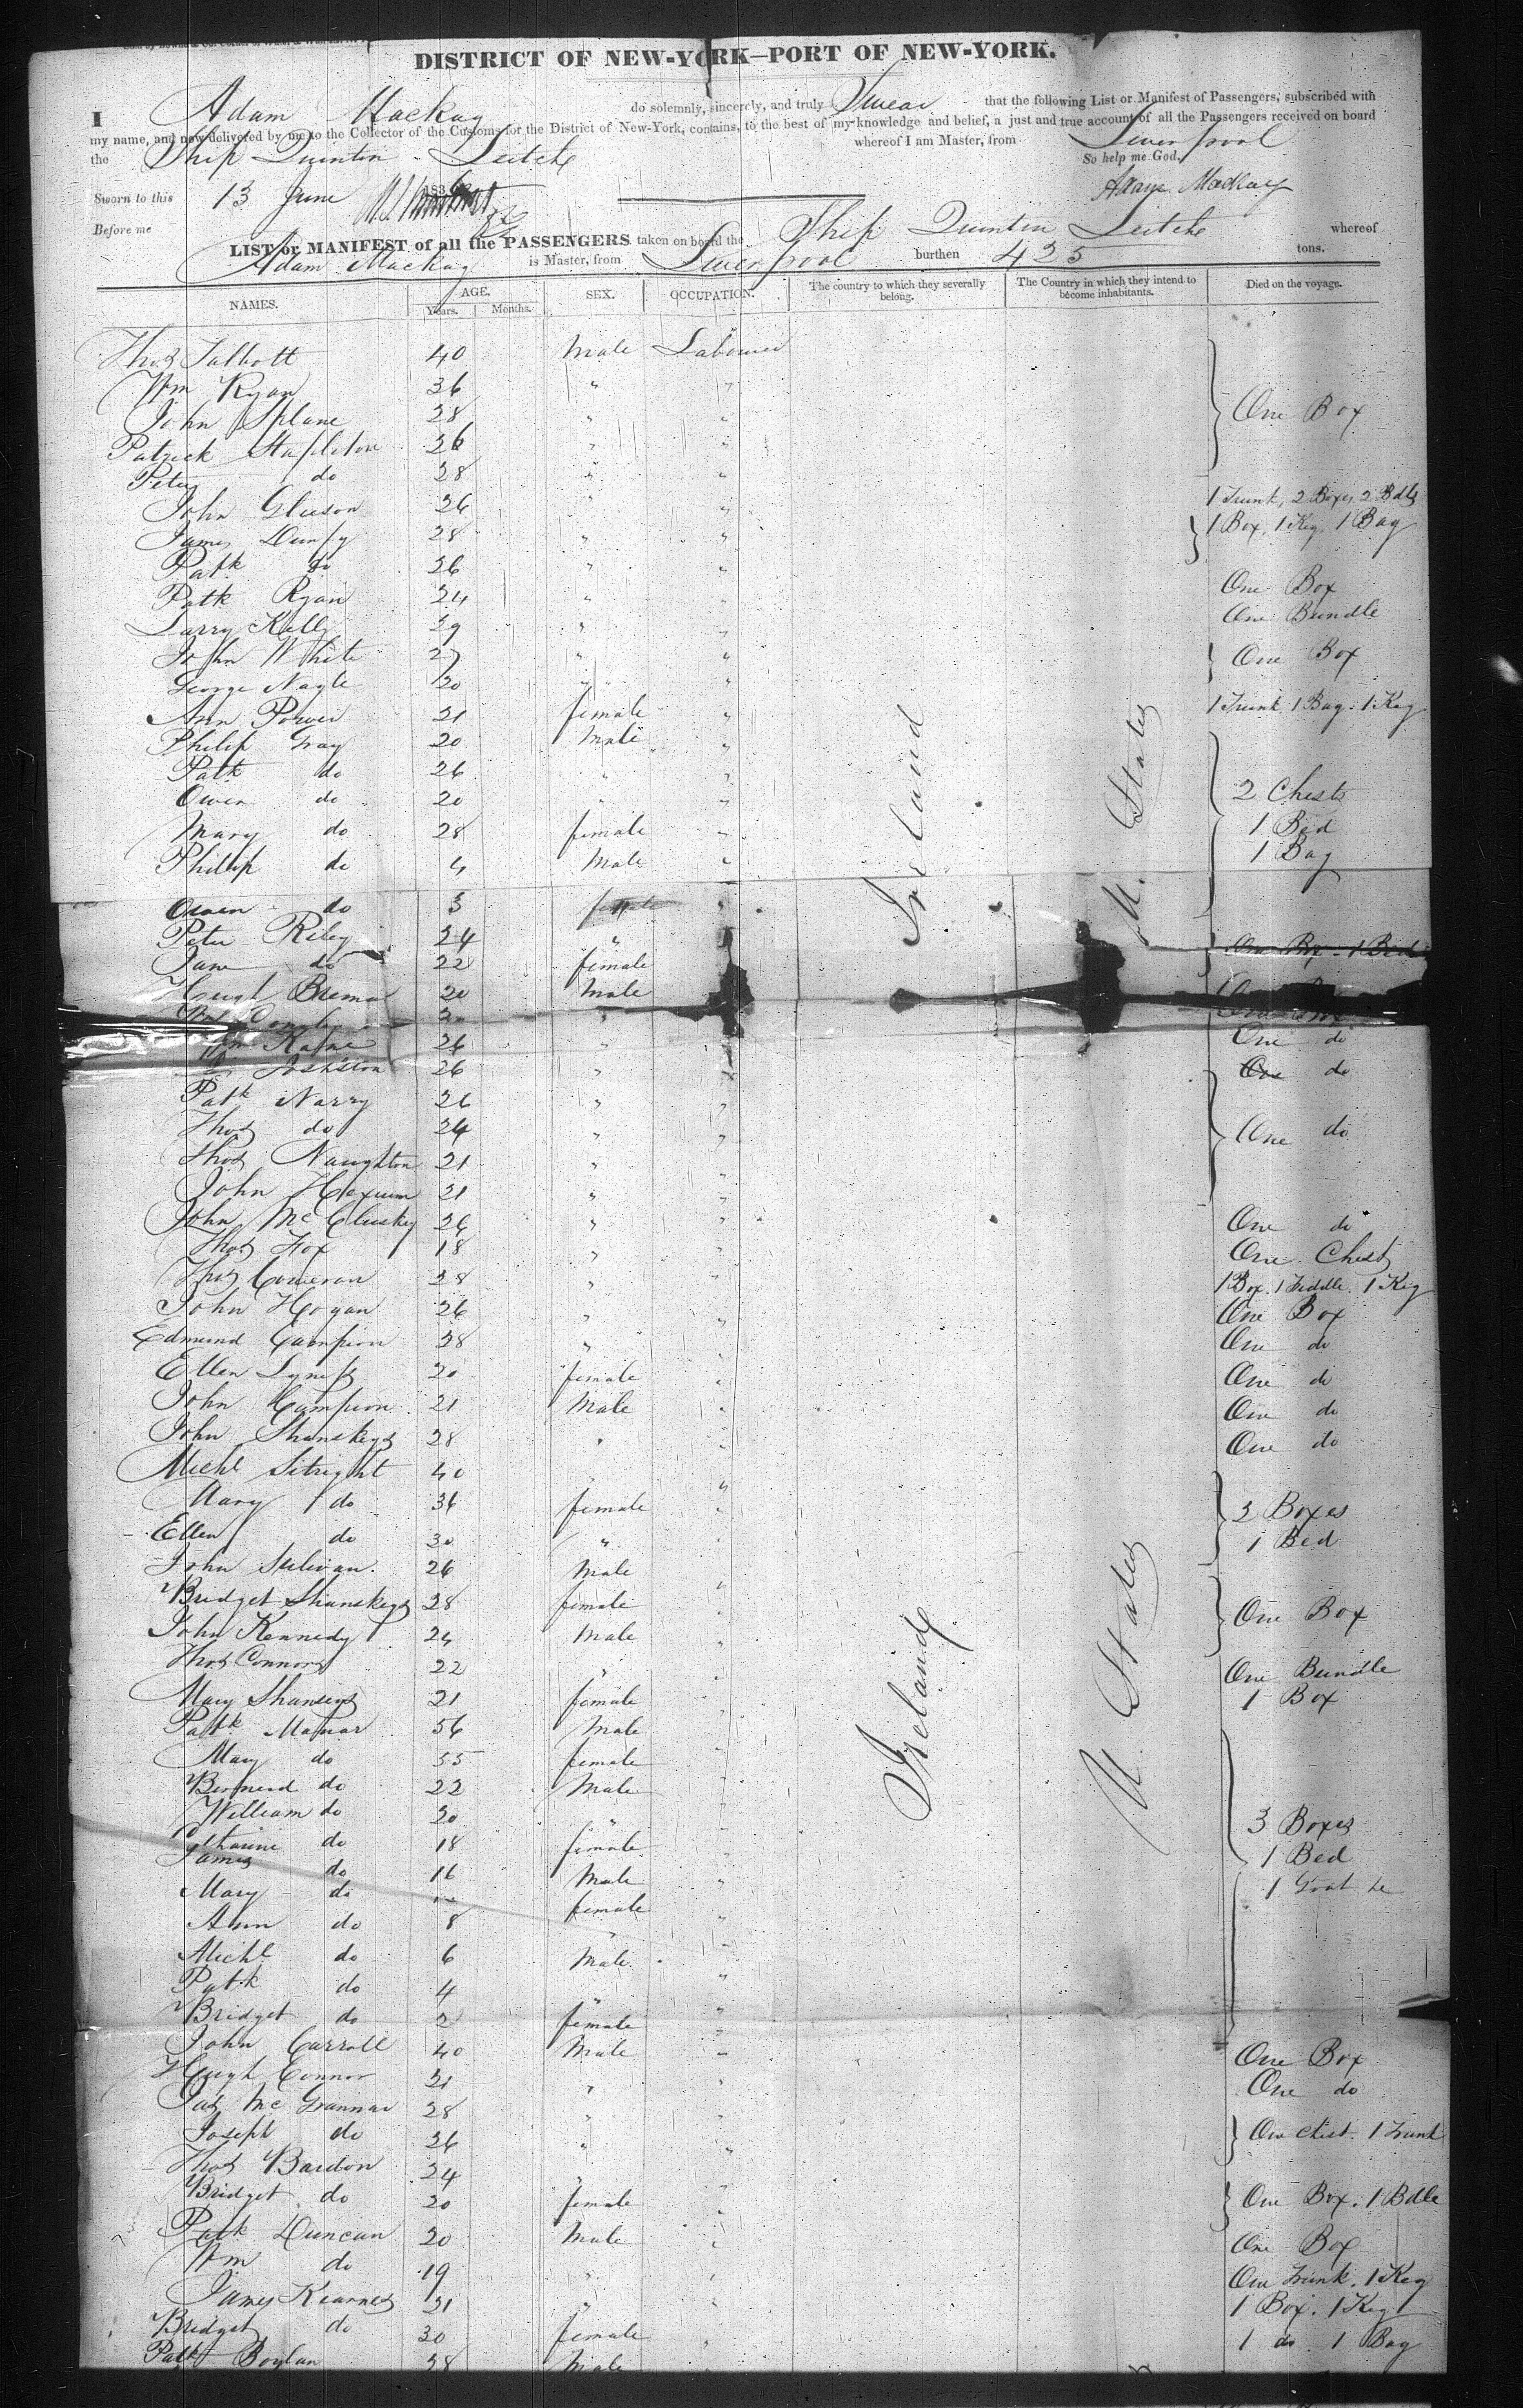 DISTRICT OF NEW-YORK—PORT OF NEW-YORK.
I Adam Mackay do solemnly, sincerely, and truly Swear that the following List or Manifest of Passengers, subscribed with
my name, and now delivered by me to the Collector of the Customs for the District of New-York, contains, to the best of my knowledge and belief, a just and true account of all the Passengers received on board
the Ship Quintin Leitch whereof I am Master, from Liverpool
So help me God.
Sworn to this 13 June 183 Adam Mackay
Before me
LIST or MANIFEST of all the PASSENGERS taken on board the Ship Quintin Leitch whereof
Adam Mackay is Master, from Liverpool burthen 425 tons.
NAMES. AGE. Years. Months. SEX. OCCUPATION. The country to which they severally belong. The Country in which they intend to become inhabitants. Died on the voyage.
Thos Talbott 40 Male Labourer
Wm Ryan 36 " "
John Splane 28 " " One Box
Patrick Stapleton 26 " "
Peter do 28 " "
John Gleeson 26 " " 1 Trunk, 2 Boxes, 2 Bdls
James Dunfy 28 " " 1 Box, 1 Keg, 1 Bag
Patk do 26 " "
Patk Ryan 24 " " One Box
Larry Kelly 29 " " One Bundle
John White 27 " " One Box
George Nagle 20 " "
Ann Power 21 female " 1 Trunk 1 Bag. 1 Keg
Philip Gray 20 Male "
Patk do 26 " "
Owen do 20 " " 2 Chests
Mary do 28 female " 1 Bed
Phillip do 4 Male " 1 Bag
Owen do 3 "
Peter Riley 24 " " One Box - 1 Bed
Jane do 22 female
Hugh 20 Male
"
Wm Kane 26 " One do
Johnston 26 " do
Patk Narry 26 " "
Thos do 24 " " One do
Thos Naughton 21 " "
John 21 " "
John McClusky 26 " " One do
Thos Fox 18 " " One Chest
Thos 28 " " 1 Box. 1 Fiddle. 1 Keg
John Hogan 26 " " One Box
Edmund Campion 28 " " One do
Ellen Lyness 20 female " One do
John Campion 21 Male " One do
John Shanskeys 28 " " One do
Michl Sitright 40 " "
Mary do 36 female " 2 Boxes
Ellen do 30 " 1 Bed
John Sulivan 26 Male
Bridget Shanskeys 28 female " One Box
John Kennedy 24 Male "
Thos Connors 22 " " One Bundle
Mary 21 female " 1 Box
Patk 56 Male
Mary do 55 female
Bernerd do 22 Male
William do 20 "
Catharine do 18 female 3 Boxes
James do 16 Male " 1 Bed
Mary do female 1
Ann do 8 " "
Michl do 6 Male "
Patk do 4 " "
Bridget do 2 female "
John Carroll 40 Male " One Box
Hugh Connor 21 " " One do
Jas Mc Grannar 28 " "
Joseph do 26 " " One Chest. 1 Trunk
Thos Bardon 24 "
Bridget do 20 female " One Box. 1 Bdle
Patk Duncan 20 Male " One Box
Wm do 19 " " One Trunk. 1 Keg
James Kearnes 21 " " 1 Box. 1 Keg
Bridget do 30 female " 1 do 1 Bag
Patk Boylan 28 Male
Ireland
U. States
Ireland
U. States